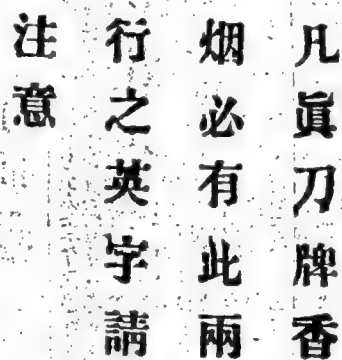 凡眞刀牌香
烟必有此兩
行之英字請
注意